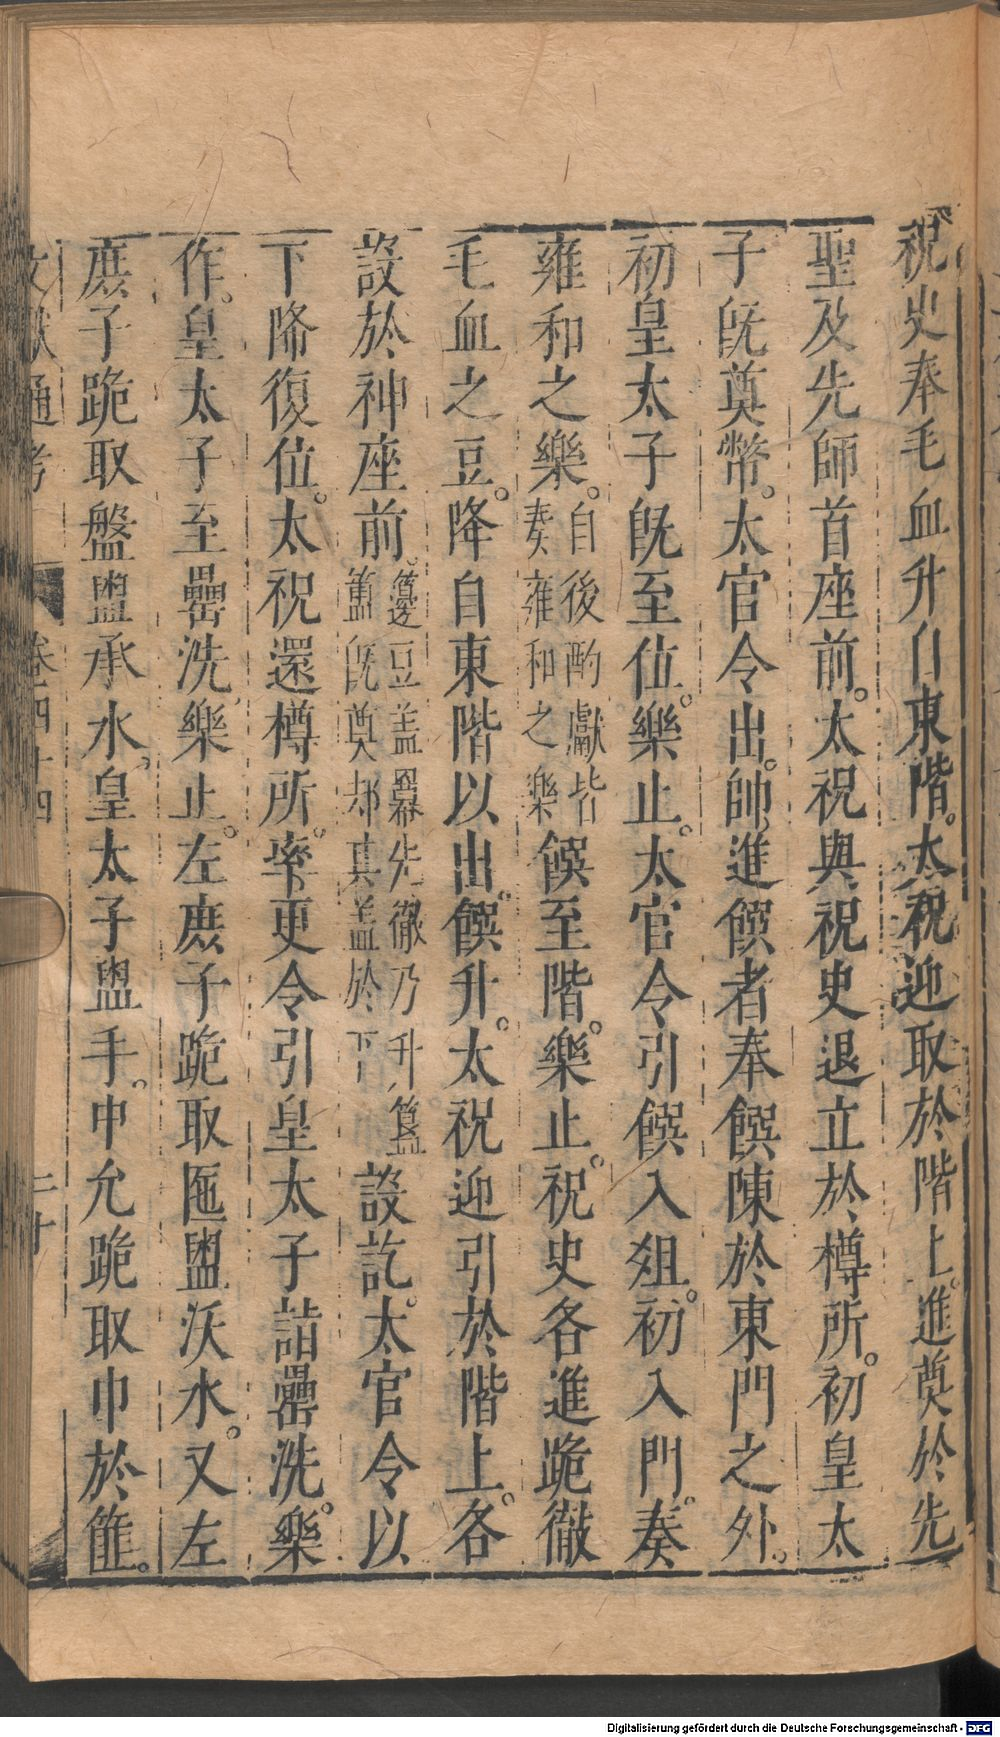 祝史奉毛血升自東階。太祝迎取於階上。進奠於先
聖及先師首座前。太祝與祝史退立於樽所。初皇太
子既奠幣。太官令出。帥進饌者奉饌陳於東門之外。
初皇太子既至位。樂止。太官令引饌入俎。初入門。奏
雍和之樂。自後酌獻皆奏雍和之樂饌至階。樂止。祝史各進跪徹
毛血之豆。降自東階以出。饌升。太祝迎引於階上。各
設於神座前。籩豆蓋冪先徹乃升簋簠既奠却其蓋於下設訖。太官令以
下降復位。太祝還樽所。率更令引皇太子詣罍洗。樂
作。皇太子至罍洗。樂止。左庶子跪取匜盥沃水。又左
庶子跪取盤盥承水。皇太子盥手。中允跪取巾於篚。
文獻通考 卷四十四 二十
Digitalisierung gefördert durch die Deutsche Forschungsgemeinschaft - DFG